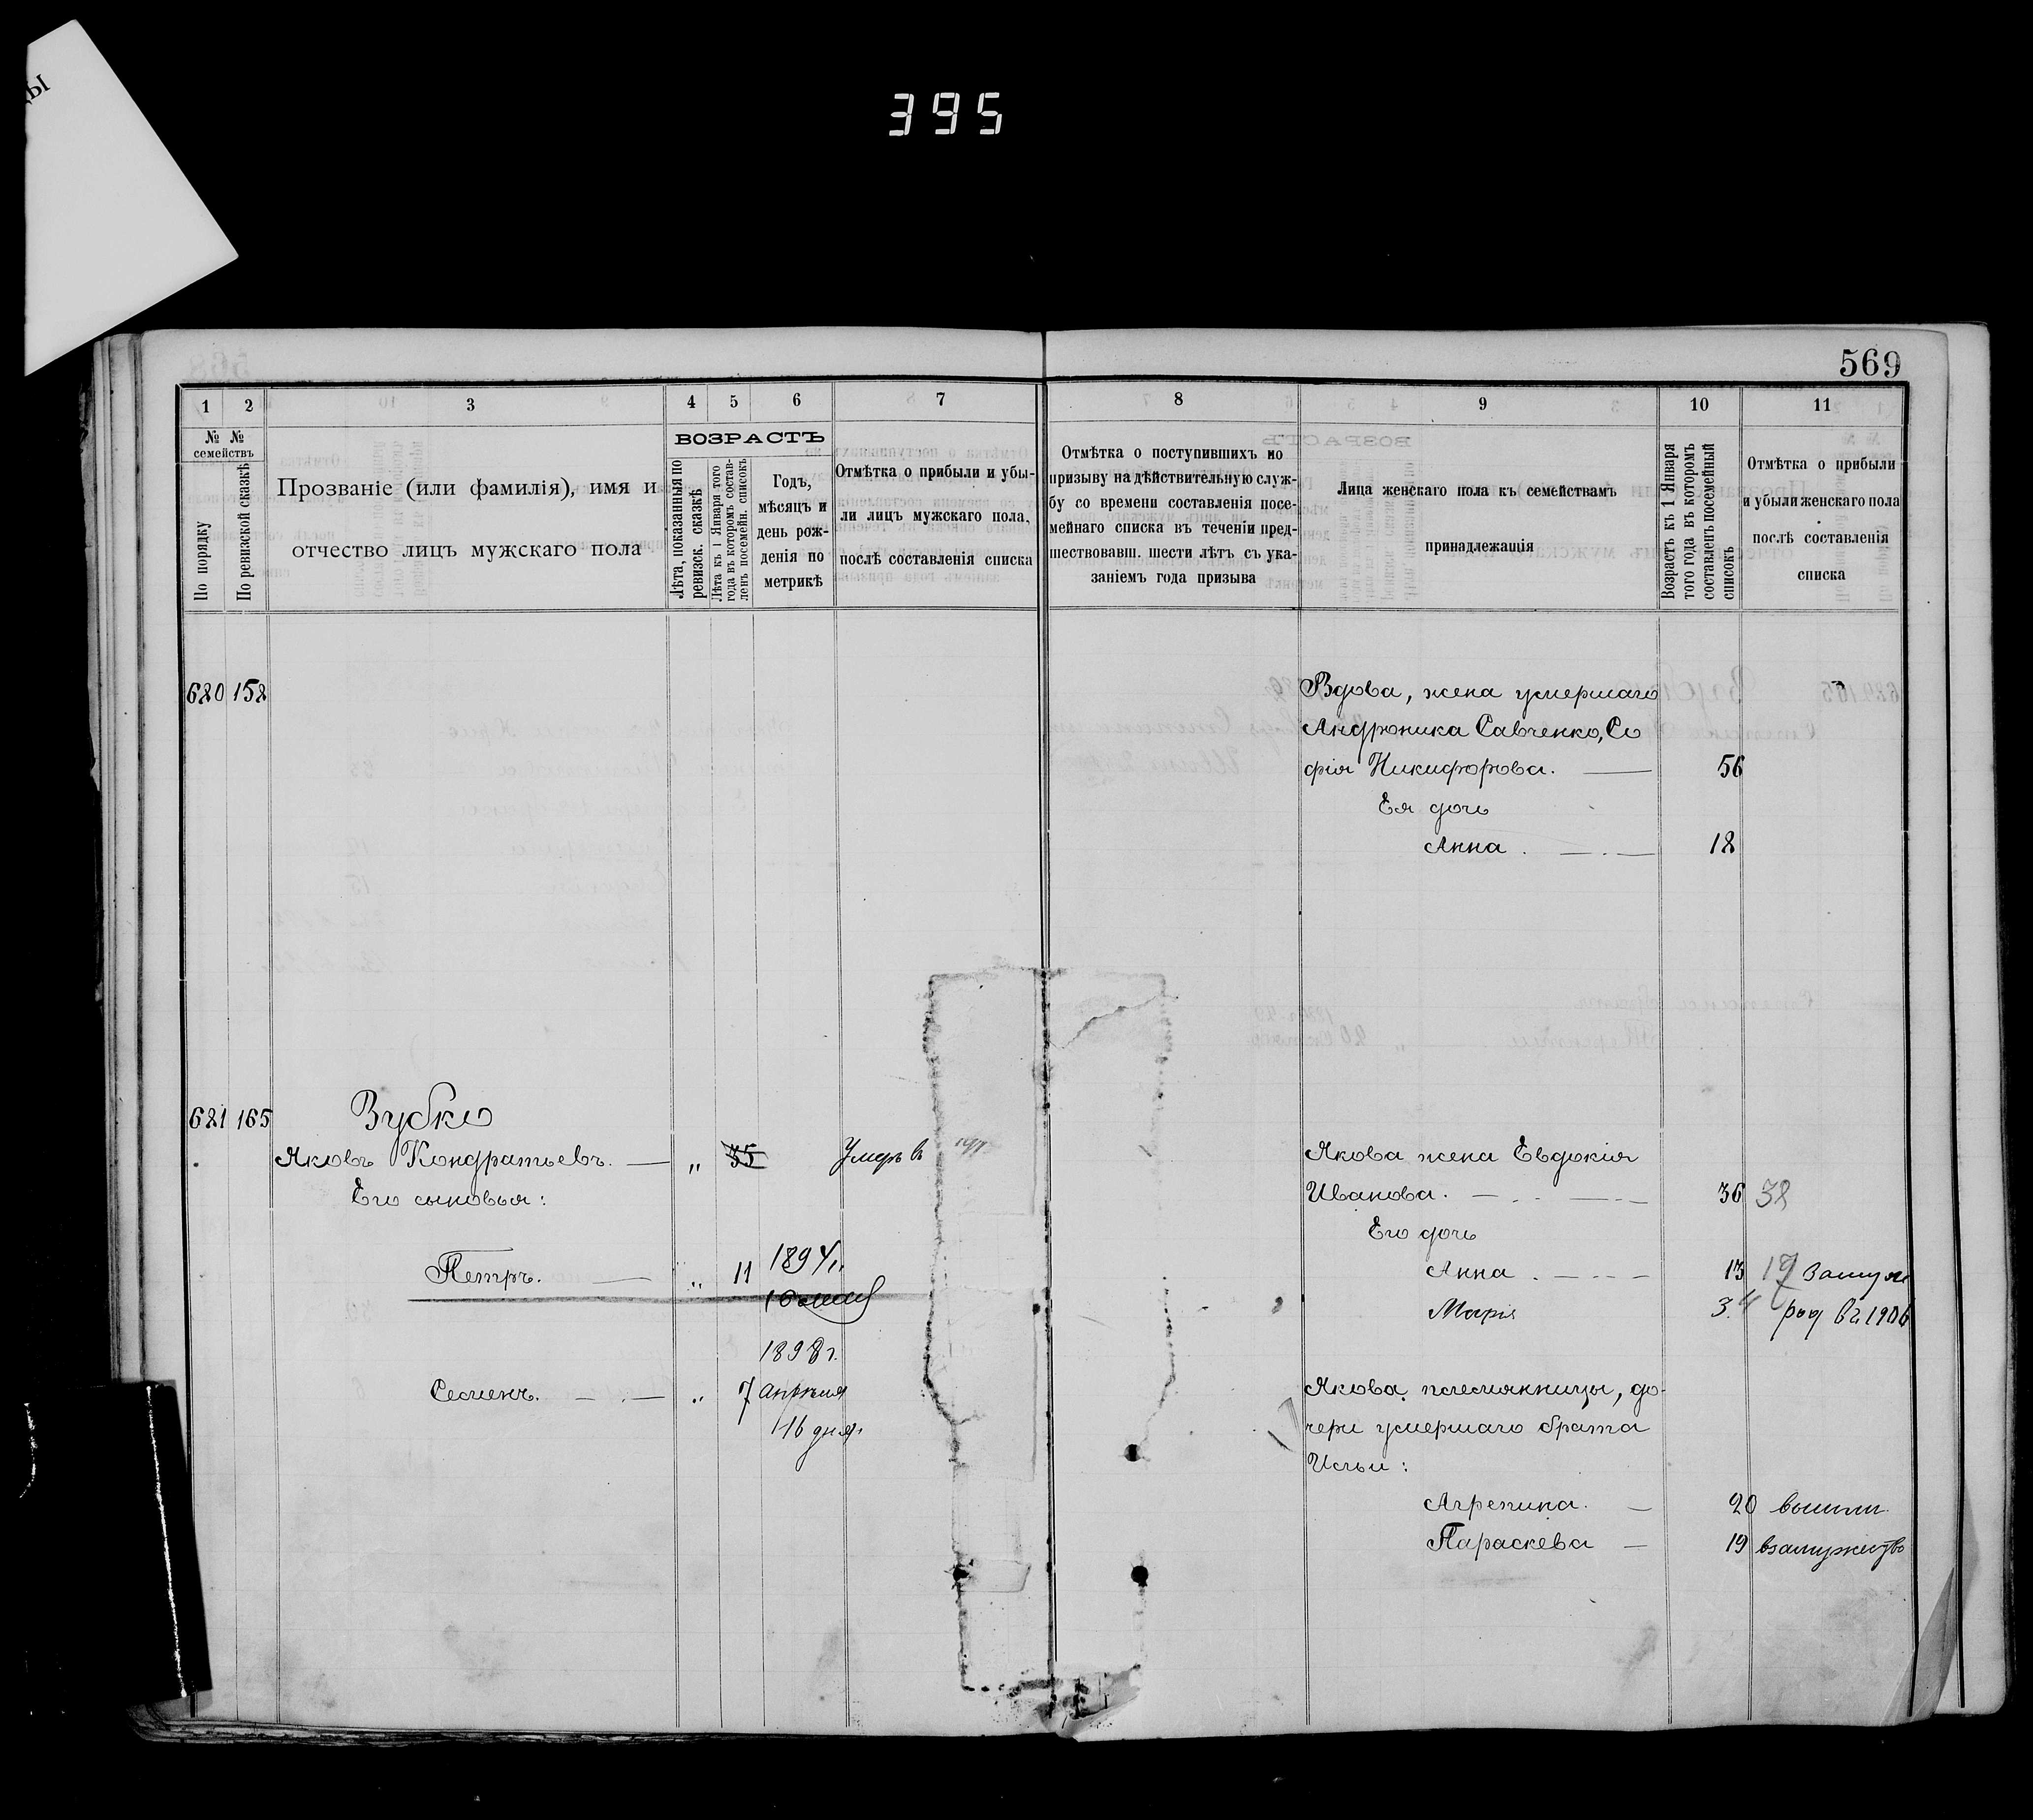 ДЫ
395
569
1 2 3 4 5 6 7 8 9 10 11
№ № семействъ
По порядку
По ревизской сказкѣ
Прозваніе (или фамилія), имя и
отчество лицъ мужскаго пола
ВОЗРАСТЪ
Лѣта, показанныя по
ревизск. сказкѣ
Лѣта къ 1 Января того
года въ которомъ состав-
ленъ посемейн. списокъ
Годъ,
мѣсяцъ и
день рож-
денія по
метрикѣ
Отмѣтка о прибыли и убы-
ли лицъ мужскаго пола,
послѣ составленія списка
Отмѣтка о поступившихъ по
призыву на дѣйствительную служ-
бу со времени составленія посе-
мейнаго списка въ теченіи пред-
шествовавш. шести лѣтъ съ ука-
заніемъ года призыва
Лица женскаго пола къ семействамъ
принадлежащія
Возрастъ къ 1 Января
того года въ которомъ
составленъ посемейный
списокъ
Отмѣтка о прибыли
и убыли женскаго пола
послѣ составленія
списка
680 158 Вдова, жена умершаго
Андроника Савченко, Со
фія Никифорова. 56
Ея дочь
Анна. 18
681 165 Зубко
Яковъ Кондратьевъ. „ 35 Умеръ въ
Его сыновья:
Петръ. „ 11 1894 г.
1898 г.
Семенъ. „ 7 апрѣля
16 дня.
Якова жена Евдокія
Иванова. 36 38
Его дочь
Анна. 13 19 Замуж
Марія 3. 4 род въ 1906
Якова племянницы, до-
чери умершаго брата
Ильи:
Агрепина. 20 вышли
Параскева 19 взамужество